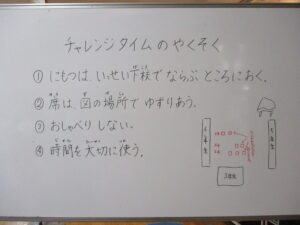 チャレンジタイムのやくそく
① にもつは、いっせい下校で ならぶ ところにおく。
② 席は、図の場所で ゆずりあう。
③ おしゃべり しない。
④ 時間を大切に使う。